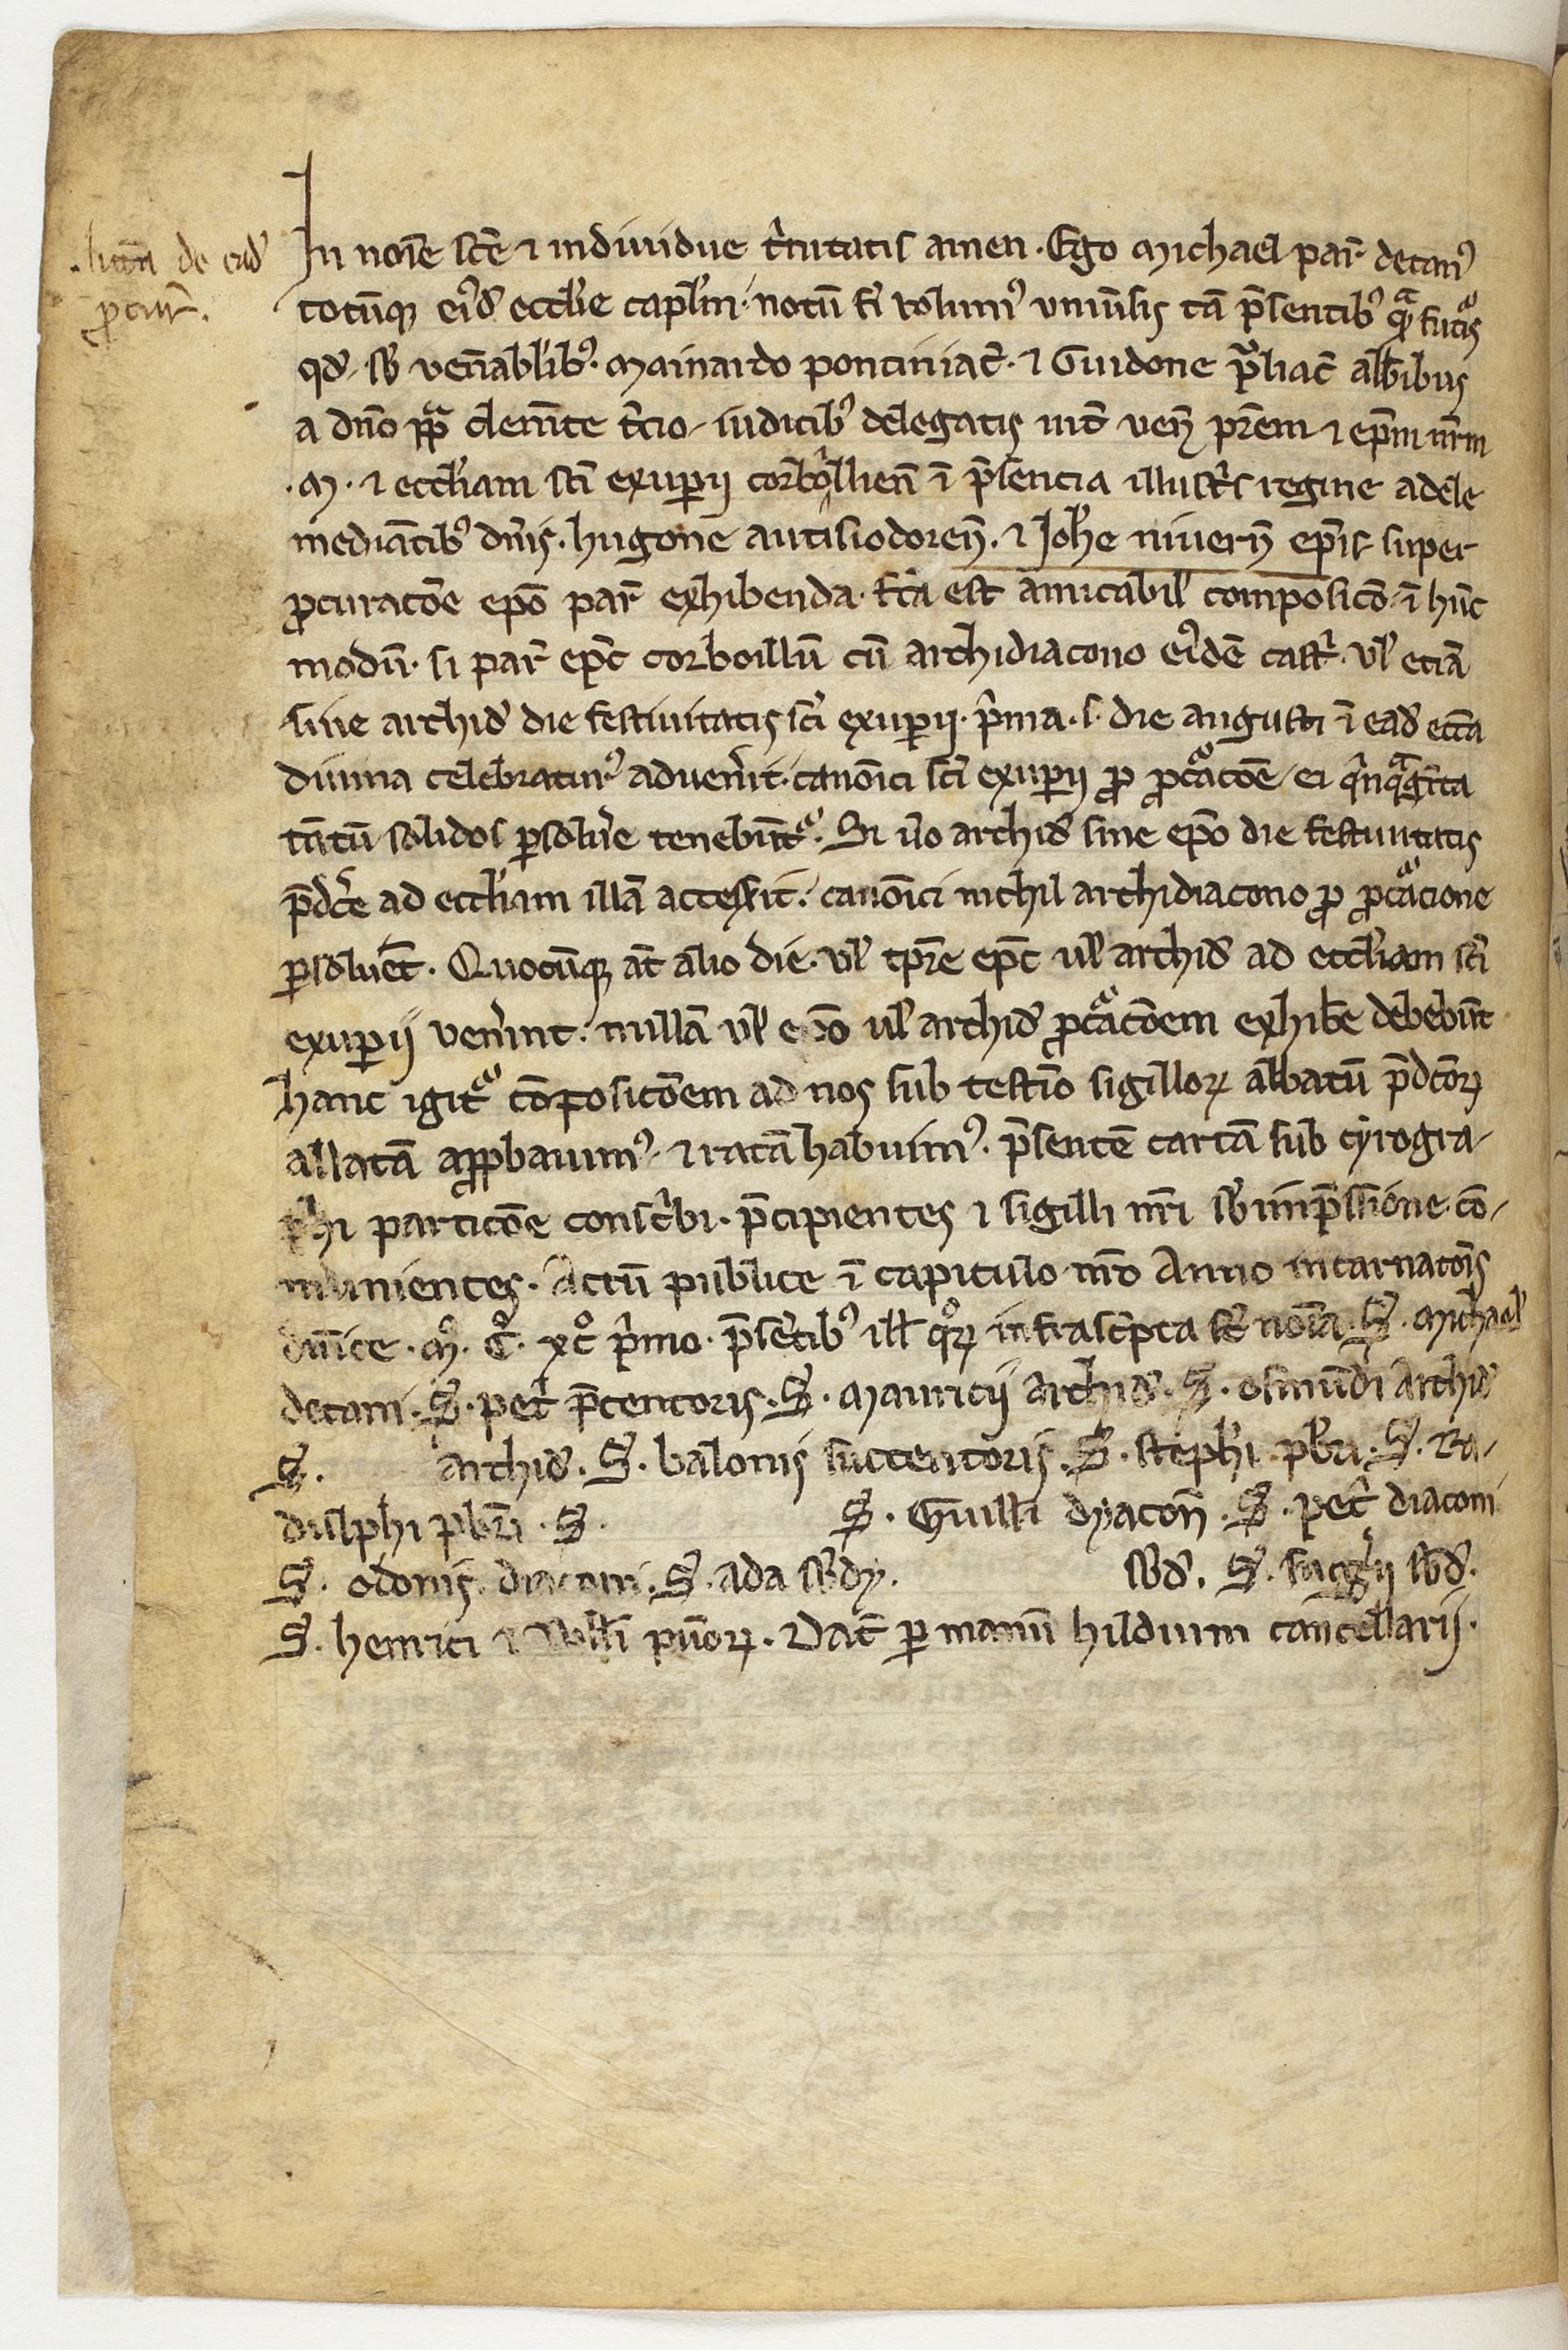 .litt̃a de ead̾
ꝓcur̃.
In noı̃e sc̃e ⁊ indiuidue tͥnitatis amen . Ego Michael par̃ decanꝰ
totũqꝫ eiꝰd̾ eccl̾ie capl̾m . notũ fi̾ uolumꝰ uniũsis tã p̃sentibꝰ qͣ futͥs
qd̾ . sb̾ uen̾ablib̾ꝰ . Mainardo pontiniac̃ . ⁊ Guidone p̃liac̃ abb̃ibus
a dño pp̃a clem̃te t̾cio . iudicibꝰ delegatis int̾ uen̾ pr̃em ⁊ ep̃m nr̃m
.M. ⁊ eccl̾iam sc̃i exuꝑii corb̾ollien̾ ĩ p̃sencia illustͥs regine adele
mediãtibꝰ dñis . hugone autisiodoren̾ . ⁊ Joh̾e niuern̾ ep̃is super
ꝓcuracõe ep̃o par̃ exhibenda . fc̃a est amicabil̾ composicõ . ĩ hũc
modũ . si par̃ ep̃c corboillũ cũ archidiacono eiꝰdẽ castͥ . ul̾ eciã
sine archid̾ die festiuitatis sc̃i exuꝑii . pͥma . s . die augusti ĩ ead̾ ecc̃a
diuina celebraturꝰ aduen̾it . canoĩci sc̃i exuꝑii ꝓ ꝓcͣacõe ei qͥnqͣgĩta
tãtũ solidos ꝑsolũe tenebũtͬ . Si ũo archid̾ sine ep̃o die festiuitatis
p̃dc̃e ad eccl̾iam illã access̾it . canoĩci nichil archidiacono ꝓ ꝓcͣacione
ꝑsoluẽt . Quocũqꝫ aũt alio die . ul̾ tp̃re ep̃c ul̾ archid̾ ad eccl̾iam sc̃i
exuꝑii uen̾int . nullã ul̾ ep̃o ul̾ archid̾ ꝓcͣacõem exhib̾e debebũt
hanc igitͬ cõposicõem ad nos sub testĩo sigilloꝝ abbatũ p̃dc̃oꝝ
allatã apꝓbauimꝰ . ⁊ ratã habuimꝰ . p̃sentẽ cartã sub cyrogra-
phi particõe conscͥbi . p̃cipientes ⁊ sigilli nr̃i sb̾ imp̃ssione cõ-
munientes . Actũ publice ĩ capitulo nr̃o Anno incarnatõis
dñice . Mͦ. Cͦ. xcͦ pͥmo . p̃sẽtibꝰ ill̾ qͦꝝ infrascͥpta st̃ noĩa . S . Michael̾
decani . S . petͥ p̃centoris . S . Mauricij Archid̾ . S . osmũdi Archid̾
S . archid̾ . S . balonis succentoris . S . steph̾i . pb̾ri . S . Ra-
dulphi pb̾ri . S . S . Guill̾i dyacon̾ . S . petͥ diaconi
S . odonis . diaconi . S . ada sb̾dy . sb̾d̾ . S . sug̾ij sb̾d̾ .
S . henrici ⁊ Will̾i pũoꝝ . Dat̃ ꝑ manũ hilduini cancellarij .